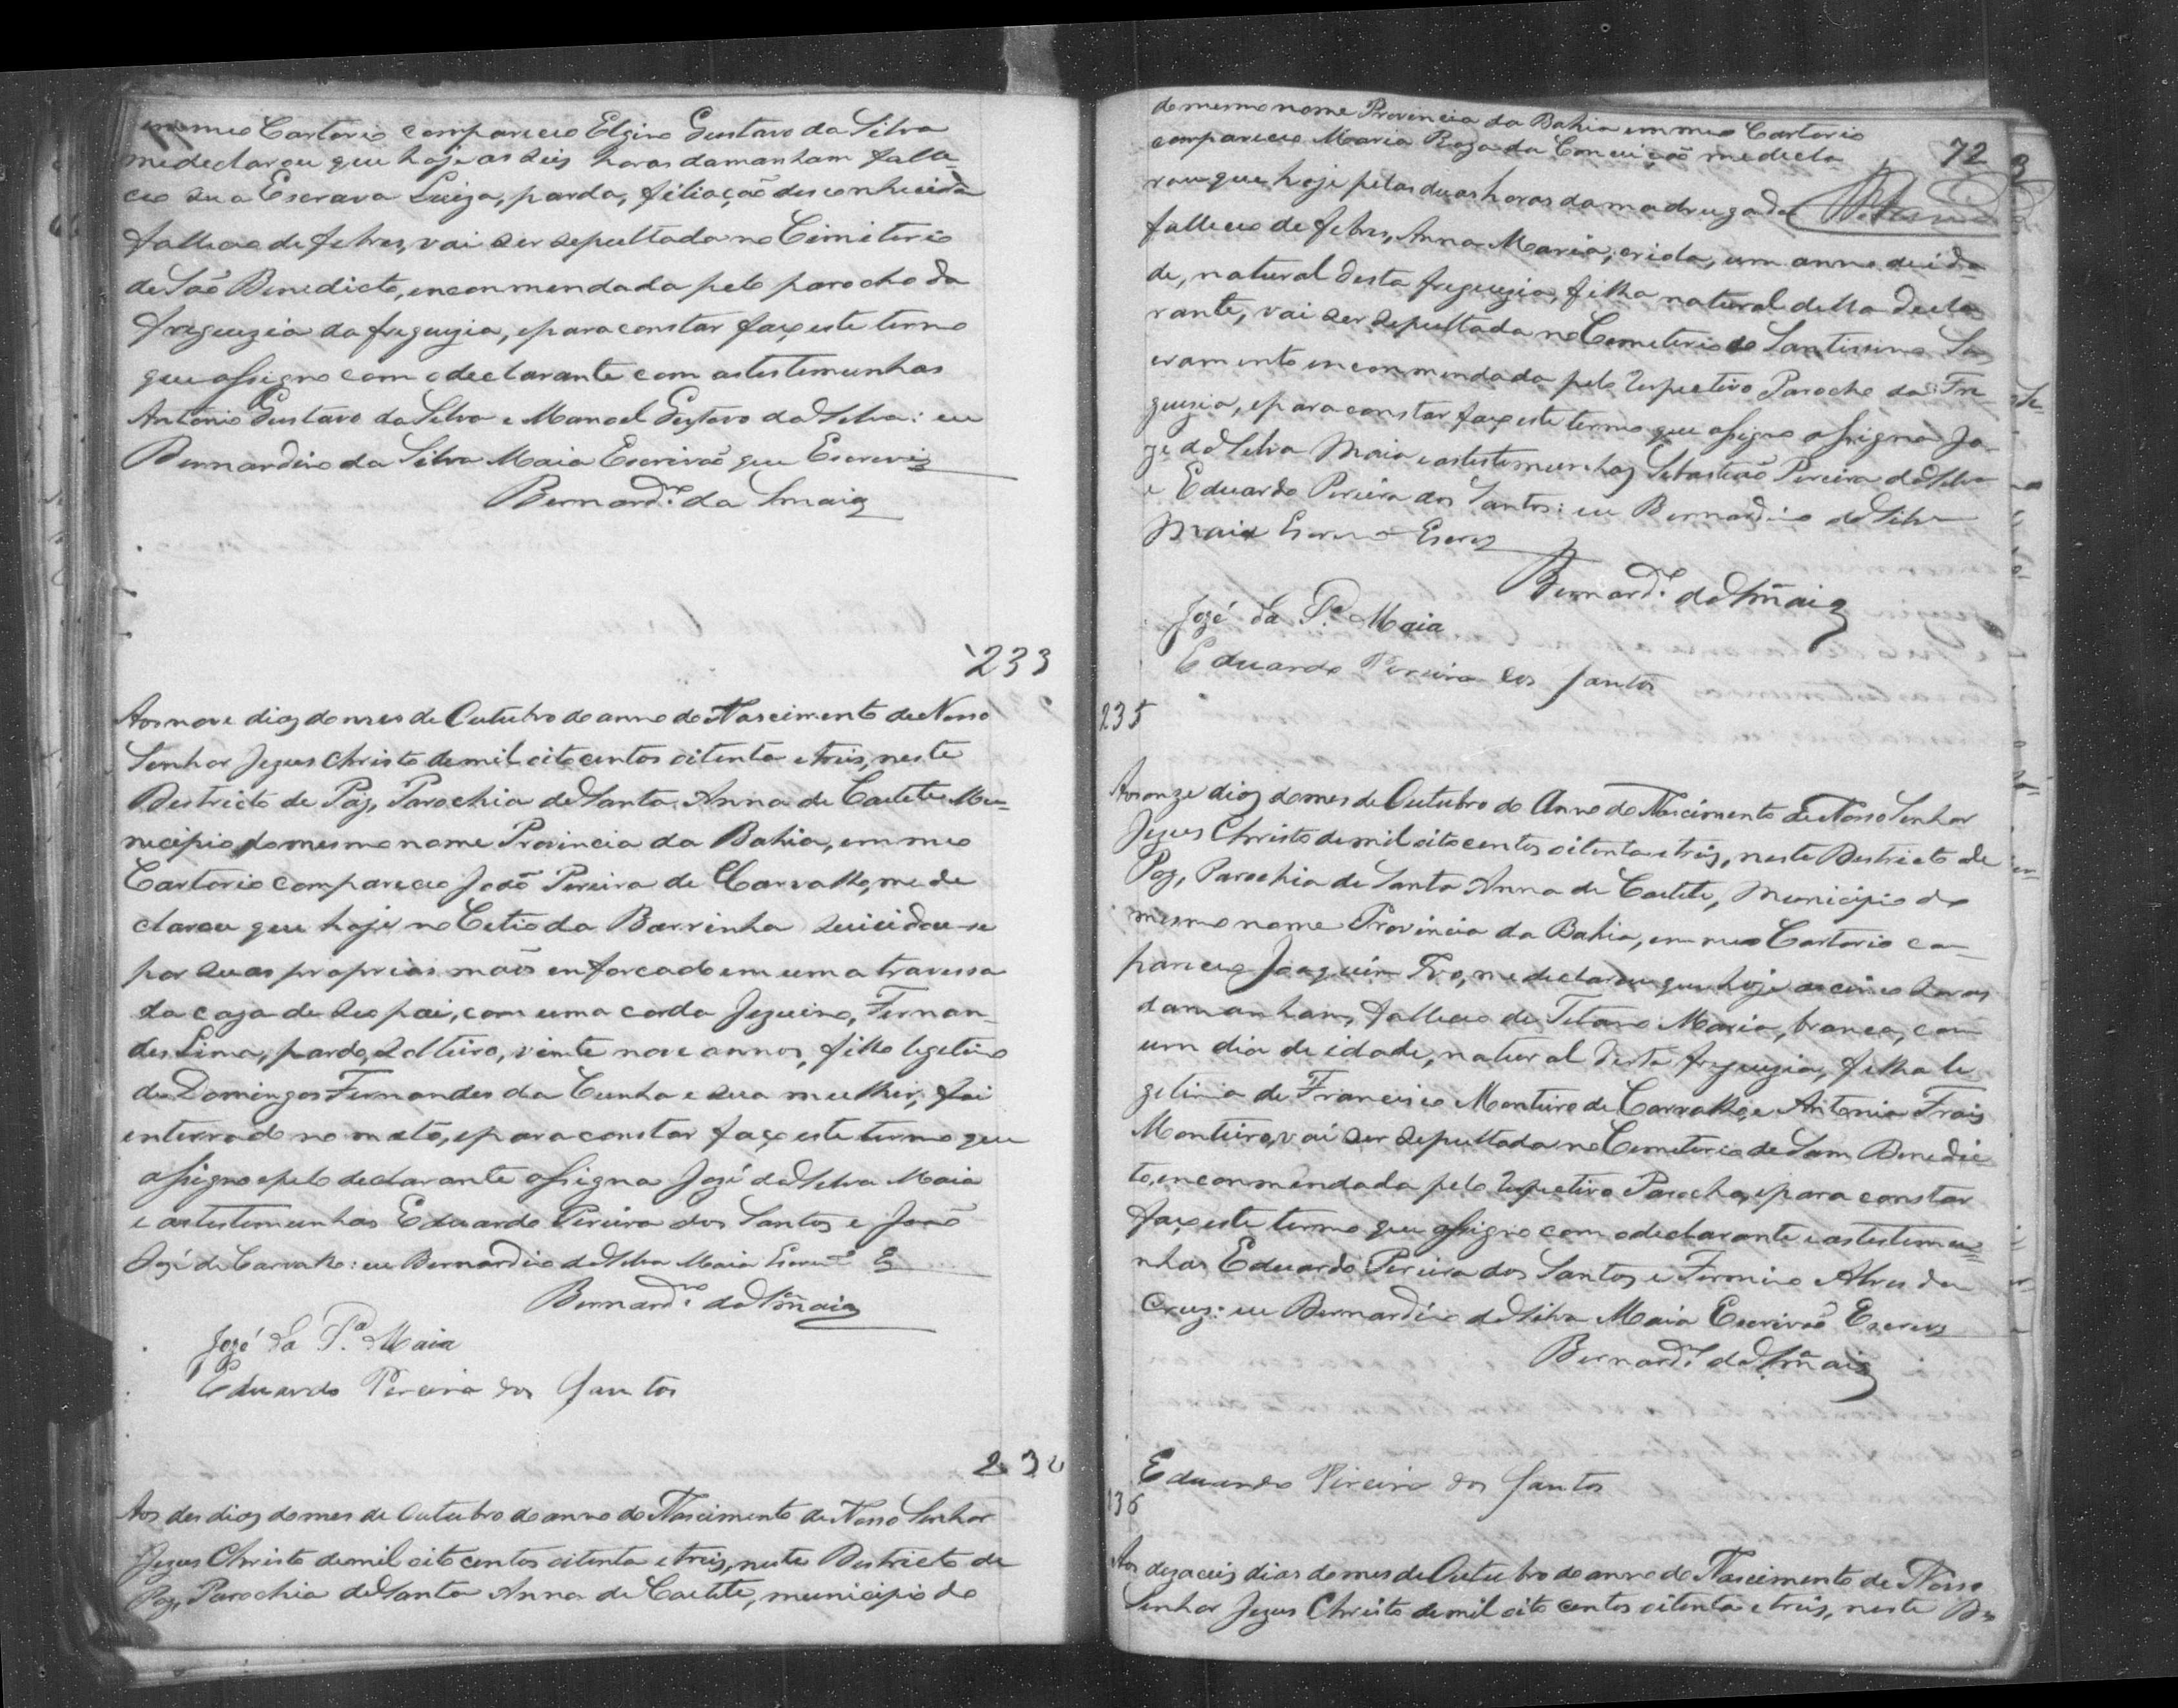 em meo Cartorio compareceo Elgino Gustavo da Silva
me declarou que hoje as seis horas da manham falle-
ceo sua Escrava Luiza, parda, filiação desconhecida
falleceo de febres, vai ser sepultada no Cimiterio
de São Benedicto, enconmendada pelo parocho da
freguezia da freguezia, e para constar faço este termo
que assigno com o declarante com as testemunhas
Antonio Gustavo da Silva e Manoel Gustavo da Silva: eu
Bernardino da Silva Maia Escrivaõ que Escrevi
Bernard.no da Smaia
233
Aos nove dias do mes de Outubro do anno do Nascimento de Nosso
Senhor Jezus Christo de mil oito centos oitenta e treis, neste
Destricto de Paz, Parochia de Santa Anna de Caetete Mu-
necipio do mesmo nome Provincia da Bahia, em meo
Cartorio compareceo João Pereira de Carvalho, me de
clarou que hoje no Cetio da Barrinha suicidou-se
por suas proprias mãos enforcado em uma travessa
da caza de seo pai, com uma corda Jezuino, Fernan-
des Lima, pardo, solteiro, vinte nove annos, filho legetimo
de Domingos Fernandes da Cunha e sua mulher, foi
enterrado no mato, e para constar faço este termo que
assigno e pelo declarante assigna José da Silva Maia
e as testemunhas Eduardo Pereira dos Santos e João
José de Carvalho: eu Bernardino da Silva Maia
Bernard.no da Smaia
Jozé da S.a Maia
Eduardo Pereira dos Santos
234
Aos des dias do mes de Outubro do anno do Nascimento de Nosso Senhor
Jezus Christo de mil oito centos oitenta e treis, neste Destricto de
Paz, Parochia de Santa Anna de Caetete, municipio do
do mesmo nome Provincia da Bahia em meo Cartorio
compareceo Maria Roza da Conceição me decla-
72
rou que hoje pelas duas horas da madrugada
falleceo de febres, Anna Maria, criola, um anno de ida
de, natural desta freguezia, filha natural della decla
rante, vai ser sepultada no Cemeterio do Santissimo Sa
cramento enconmendada pelo respectivo Parocho da Fre
guezia, e para constar faço este termo que assigno assigna Jo
ze da Silva Maia e as testemunhas Sebastião Pereira da Silva
e Eduardo Pereira dos Santos: eu Bernardino da Silva
Maia
Bernard.o da Smaia
Jozé da S.a Maia
Eduardo Pereira dos Santos
235
Aos onze dias do mes de Outubro do Anno do Nascimento de Nosso Senhor
Jezus Christo de mil oito centos oitenta e treis, neste Destricto de
Paz, Parochia de Santa Anna de Caetete, Municipio do
mesmo nome Provincia da Bahia, em meo Cartorio co
pareceo Joaquim Ivo, me declarou que hoje as cinco horas
da manham, falleceo de Tetano Maria, branca, com
um dia de idade, natural desta freguezia, filha le
getima de Francisco Monteiro de Carvalho, e Antonia
Monteiro, vai ser sepultada no Cemeterio de Sam Benedic
to, enconmendada pelo respectivo Parocho, e para constar
faço este termo que assigno com o declarante e as testemu-
nhas Eduardo Pereira dos Santos e Firmino Alves da
Cruz: eu Bernardino da Silva Maia Escrivaõ Escrevi
Bernard.o da Smaia
Eduardo Pereira dos Santos
136
Aos dezaceis dias do mes de Outubro do anno do Nascimento de Nosso
Senhor Jezus Christo de mil oito centos oitenta e treis, neste Des